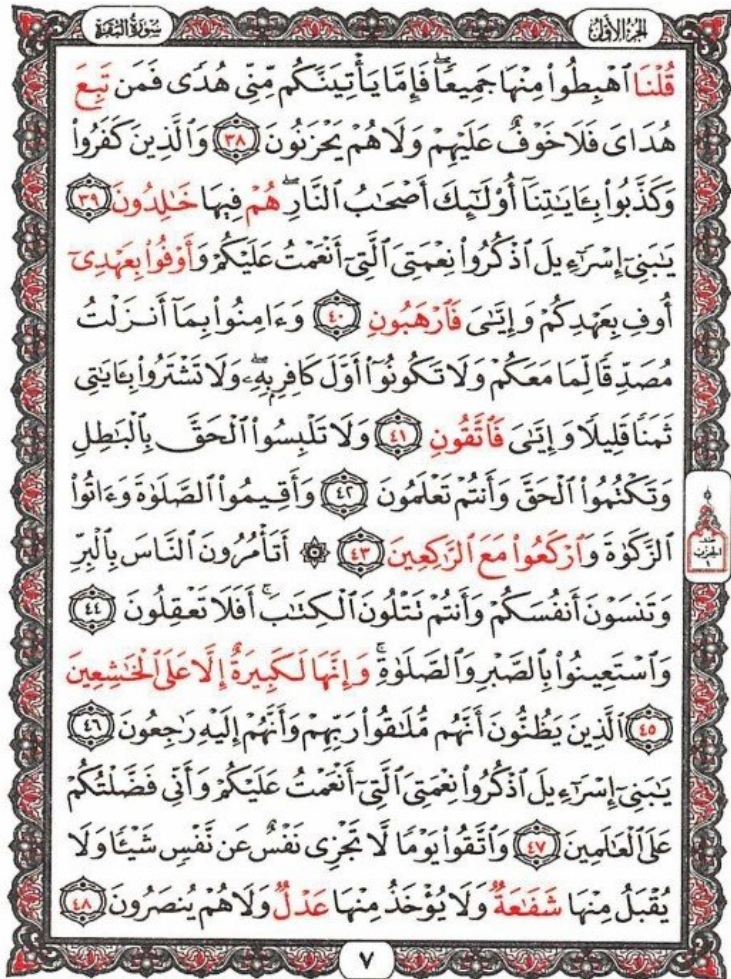 سُورَةُ البَقَرَةِ
الجُزْءُ الأَوَّلُ
قُلْنَا ٱهْبِطُوا۟ مِنْهَا جَمِيعًۭا ۖ فَإِمَّا يَأْتِيَنَّكُم مِّنِّى هُدًۭى فَمَن تَبِعَ
هُدَاىَ فَلَا خَوْفٌ عَلَيْهِمْ وَلَا هُمْ يَحْزَنُونَ ٣٨ وَٱلَّذِينَ كَفَرُوا۟
وَكَذَّبُوا۟ بِـَٔايَـٰتِنَآ أُو۟لَـٰٓئِكَ أَصْحَـٰبُ ٱلنَّارِ ۖ هُمْ فِيهَا خَـٰلِدُونَ ٣٩
يَـٰبَنِىٓ إِسْرَٰٓءِيلَ ٱذْكُرُوا۟ نِعْمَتِىَ ٱلَّتِىٓ أَنْعَمْتُ عَلَيْكُمْ وَأَوْفُوا۟ بِعَهْدِىٓ
أُوفِ بِعَهْدِكُمْ وَإِيَّـٰىَ فَٱرْهَبُونِ ٤٠ وَءَامِنُوا۟ بِمَآ أَنزَلْتُ
مُصَدِّقًۭا لِّمَا مَعَكُمْ وَلَا تَكُونُوٓا۟ أَوَّلَ كَافِرٍۭ بِهِۦ ۖ وَلَا تَشْتَرُوا۟ بِـَٔايَـٰتِى
ثَمَنًۭا قَلِيلًۭا وَإِيَّـٰىَ فَٱتَّقُونِ ٤١ وَلَا تَلْبِسُوا۟ ٱلْحَقَّ بِٱلْبَـٰطِلِ
وَتَكْتُمُوا۟ ٱلْحَقَّ وَأَنتُمْ تَعْلَمُونَ ٤٢ وَأَقِيمُوا۟ ٱلصَّلَوٰةَ وَءَاتُوا۟
ٱلزَّكَوٰةَ وَٱرْكَعُوا۟ مَعَ ٱلرَّٰكِعِينَ ٤٣ ۞ أَتَأْمُرُونَ ٱلنَّاسَ بِٱلْبِرِّ
وَتَنسَوْنَ أَنفُسَكُمْ وَأَنتُمْ تَتْلُونَ ٱلْكِتَـٰبَ ۚ أَفَلَا تَعْقِلُونَ ٤٤
وَٱسْتَعِينُوا۟ بِٱلصَّبْرِ وَٱلصَّلَوٰةِ ۚ وَإِنَّهَا لَكَبِيرَةٌ إِلَّا عَلَى ٱلْخَـٰشِعِينَ
٤٥ ٱلَّذِينَ يَظُنُّونَ أَنَّهُم مُّلَـٰقُوا۟ رَبِّهِمْ وَأَنَّهُمْ إِلَيْهِ رَٰجِعُونَ ٤٦
يَـٰبَنِىٓ إِسْرَٰٓءِيلَ ٱذْكُرُوا۟ نِعْمَتِىَ ٱلَّتِىٓ أَنْعَمْتُ عَلَيْكُمْ وَأَنِّى فَضَّلْتُكُمْ
عَلَى ٱلْعَـٰلَمِينَ ٤٧ وَٱتَّقُوا۟ يَوْمًۭا لَّا تَجْزِى نَفْسٌ عَن نَّفْسٍۢ شَيْـًۭٔا وَلَا
يُقْبَلُ مِنْهَا شَفَـٰعَةٌۭ وَلَا يُؤْخَذُ مِنْهَا عَدْلٌۭ وَلَا هُمْ يُنصَرُونَ ٤٨
٧